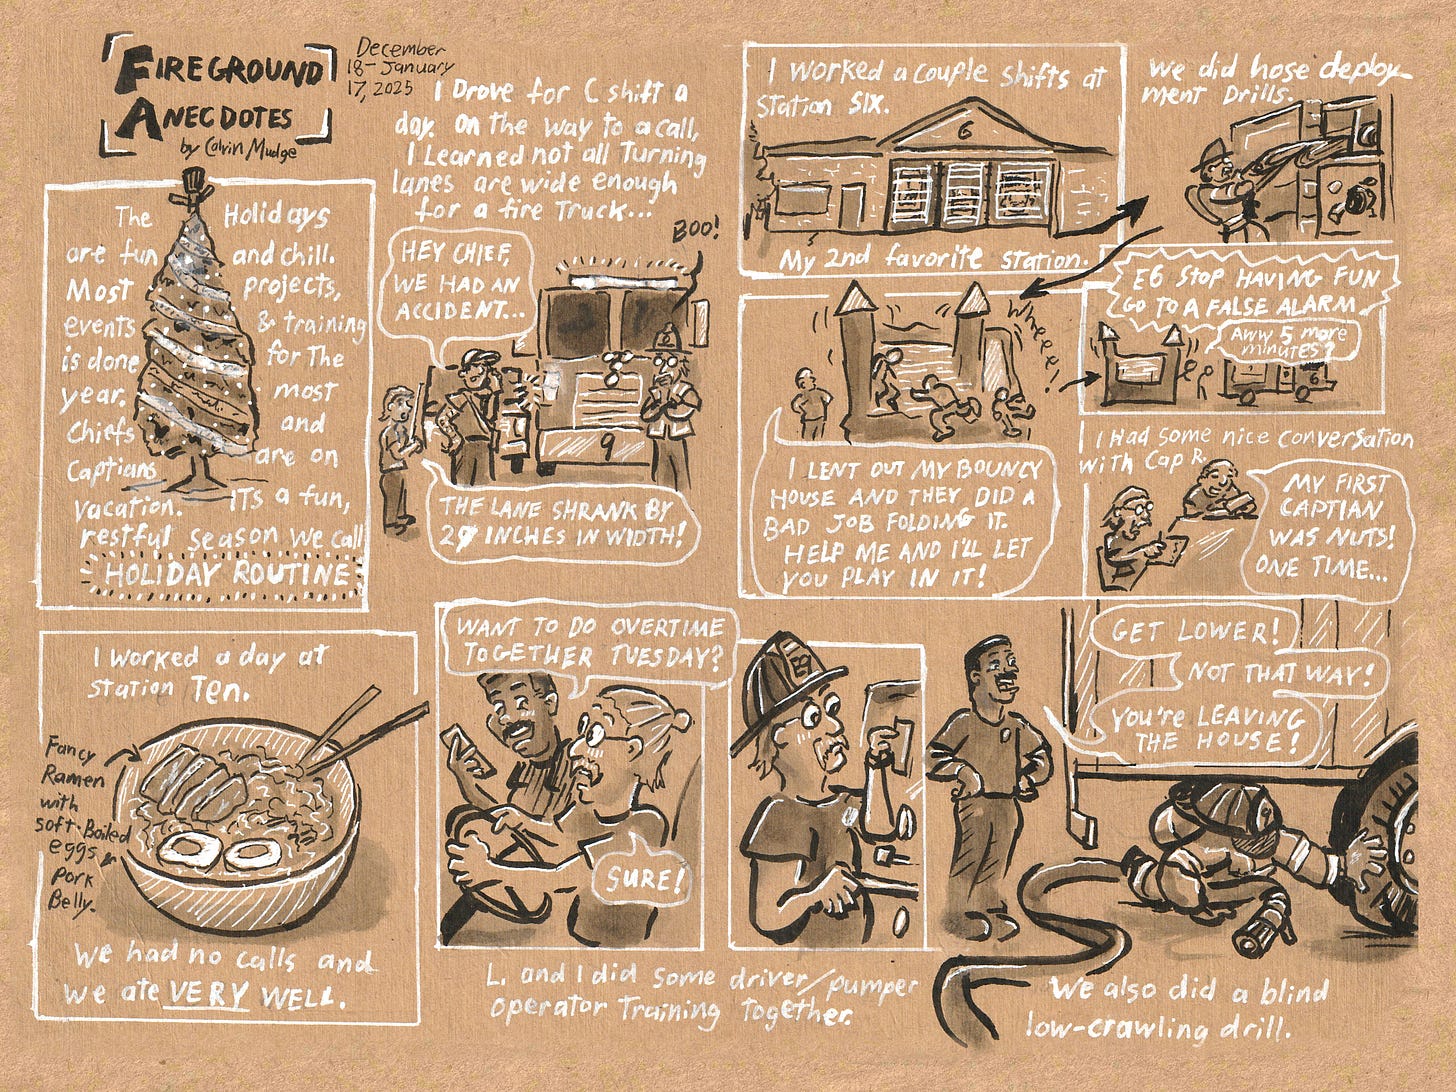 FIREGROUND
ANECDOTES
by Calvin Mudge
December
18-January
17, 2025
The Holidays
are fun and chill.
Most projects,
events & training
is done for The
year, most
Chiefs and
Captians are on
vacation. ITs a fun,
restful season we call
HOLIDAY ROUTINE
I Drove for C shift a
day. On the way to a call,
I Learned not all Turning
lanes are wide enough
for a fire Truck...
BOO!
HEY CHIEF,
WE HAD AN
ACCIDENT...
9
THE LANE SHRANK BY
29 INCHES IN WIDTH!
I worked a couple shifts at
Station SIX.
6
My 2nd favorite station.
we did hose deploy-
ment Drills.
Wheeee!
I LENT OUT MY BOUNCY
HOUSE AND THEY DID A
BAD JOB FOLDING IT.
HELP ME AND I'LL LET
YOU PLAY IN IT!
E6 STOP HAVING FUN
GO TO A FALSE ALARM.
Aww 5 more
minutes?
6
I Had some nice conversation
with Cap R.
MY FIRST
CAPTIAN
WAS NUTS!
ONE TIME...
I worked a day at
Station Ten.
Fancy
Ramen
with
soft-Boiled
eggs &
Pork
Belly.
We had no calls and
we ate VERY WELL.
WANT TO DO OVERTIME
TOGETHER TUESDAY?
SURE!
E9
L. and I did some driver/pumper
operator Training Together.
GET LOWER!
NOT THAT WAY!
YOU'RE LEAVING
THE HOUSE!
We also did a blind
low-crawling drill.